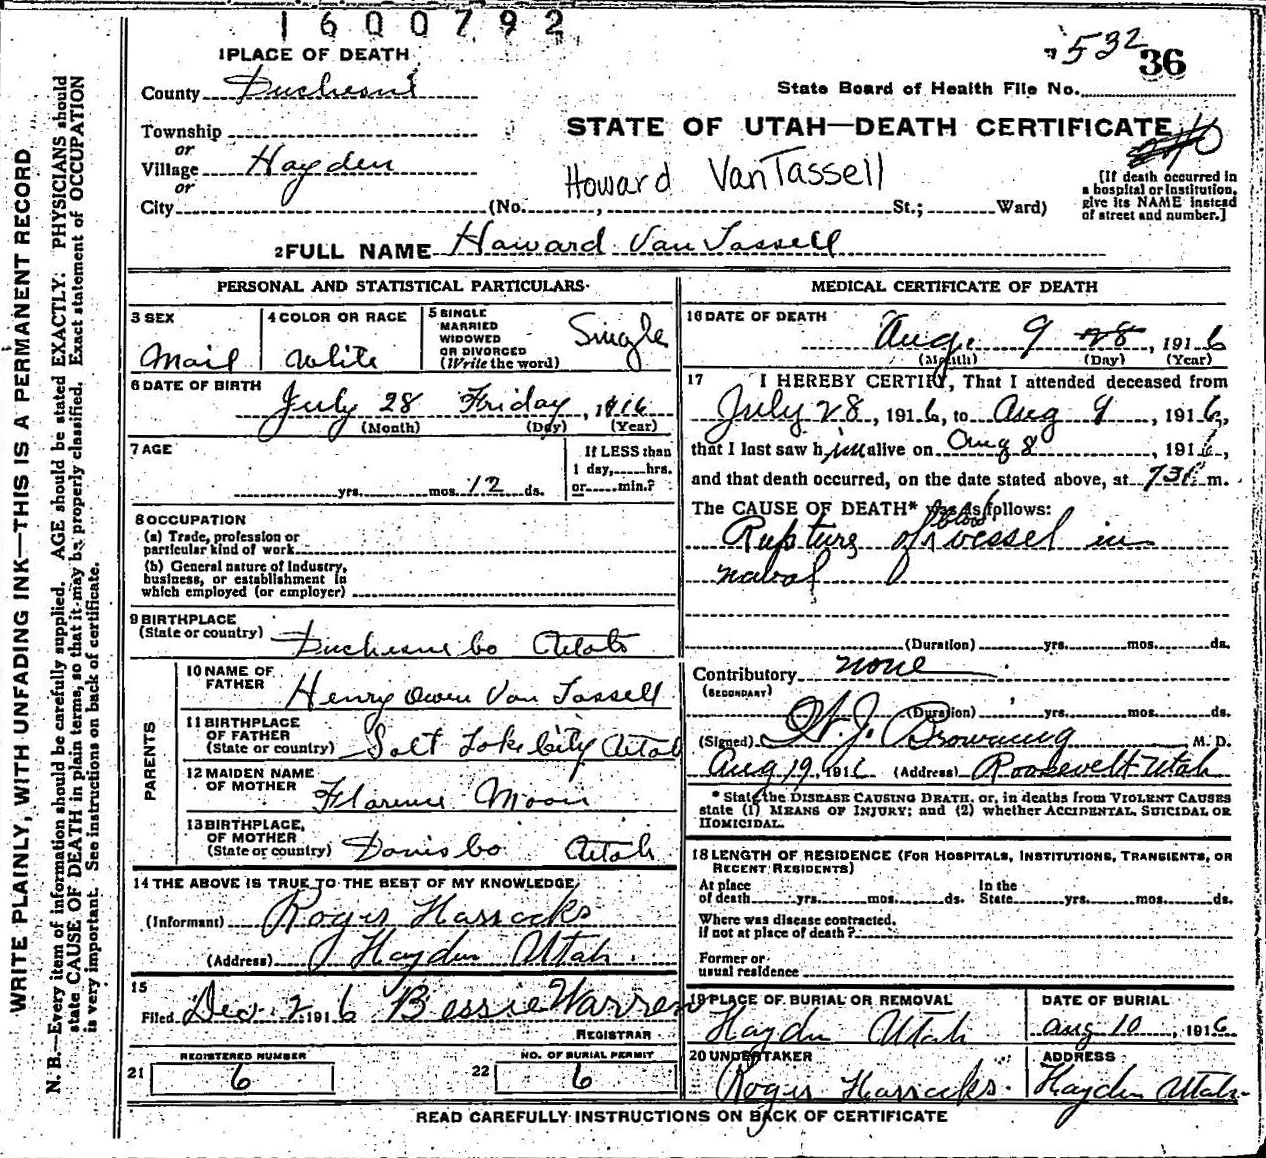 1600792
1 PLACE OF DEATH
532
36
County Duchesne
State Board of Health File No.
Township
or
STATE OF UTAH—DEATH CERTIFICATE
Village Hayden
or
Howard VanTassell
[If death occurred in
a hospital or institution,
give its NAME instead
of street and number.]
City (No. , St.; Ward)
2 FULL NAME Howard Van Tassell
PERSONAL AND STATISTICAL PARTICULARS
3 SEX
Mail
4 COLOR OR RACE
White
5 SINGLE
MARRIED
WIDOWED
OR DIVORCED
(Write the word)
Single
6 DATE OF BIRTH
July 28 Friday, 1916
(Month) (Day) (Year)
7 AGE
yrs. mos. 12 ds.
If LESS than
1 day, hrs.
or min.?
8 OCCUPATION
(a) Trade, profession or
particular kind of work
(b) General nature of Industry,
business, or establishment in
which employed (or employer)
9 BIRTHPLACE
(State or country) Duchesne Co Utah
PARENTS
10 NAME OF
FATHER Henry Owen Van Tassell
11 BIRTHPLACE
OF FATHER
(State or country) Salt Lake City Utah
12 MAIDEN NAME
OF MOTHER Florence Moon
13 BIRTHPLACE,
OF MOTHER
(State or country) Davis Co Utah
14 THE ABOVE IS TRUE TO THE BEST OF MY KNOWLEDGE
(Informant) Roger Harrocks
(Address) Hayden Utah.
15
Filed Dec. 2 1916 Bessie Warren
REGISTRAR
REGISTERED NUMBER
21 6
NO. OF BURIAL PERMIT
22 6
MEDICAL CERTIFICATE OF DEATH
16 DATE OF DEATH
Aug. 9 28, 1916
(Month) (Day) (Year)
17 I HEREBY CERTIFY, That I attended deceased from
July 28, 1916, to Aug 9, 1916,
that I last saw him alive on Aug 8, 1916,
and that death occurred, on the date stated above, at m.
The CAUSE OF DEATH* was as follows:
Rupture of blood vessel in
naval
(Duration) yrs. mos. ds.
Contributory none
(SECONDARY)
(Duration) yrs. mos. ds.
(Signed) J. Browning M. D.
Aug 19, 1916 (Address) Roosevelt Utah
* State the DISEASE CAUSING DEATH, or, in deaths from VIOLENT CAUSES
state (1) MEANS OF INJURY; and (2) whether ACCIDENTAL, SUICIDAL OR
HOMICIDAL.
18 LENGTH OF RESIDENCE (FOR HOSPITALS, INSTITUTIONS, TRANSIENTS, OR
RECENT RESIDENTS)
At place
of death yrs. mos. ds.
In the
State yrs. mos. ds.
Where was disease contracted,
if not at place of death?
Former or
usual residence
19 PLACE OF BURIAL OR REMOVAL
Hayden Utah
DATE OF BURIAL
Aug 10, 1916
20 UNDERTAKER
Roger Harrocks.
ADDRESS
Hayden Utah
READ CAREFULLY INSTRUCTIONS ON BACK OF CERTIFICATE
WRITE PLAINLY, WITH UNFADING INK—THIS IS A PERMANENT RECORD
N. B.—Every item of information should be carefully supplied. AGE should be stated EXACTLY. PHYSICIANS should
state CAUSE OF DEATH in plain terms, so that it may be properly classified. Exact statement of OCCUPATION
is very important. See instructions on back of certificate.